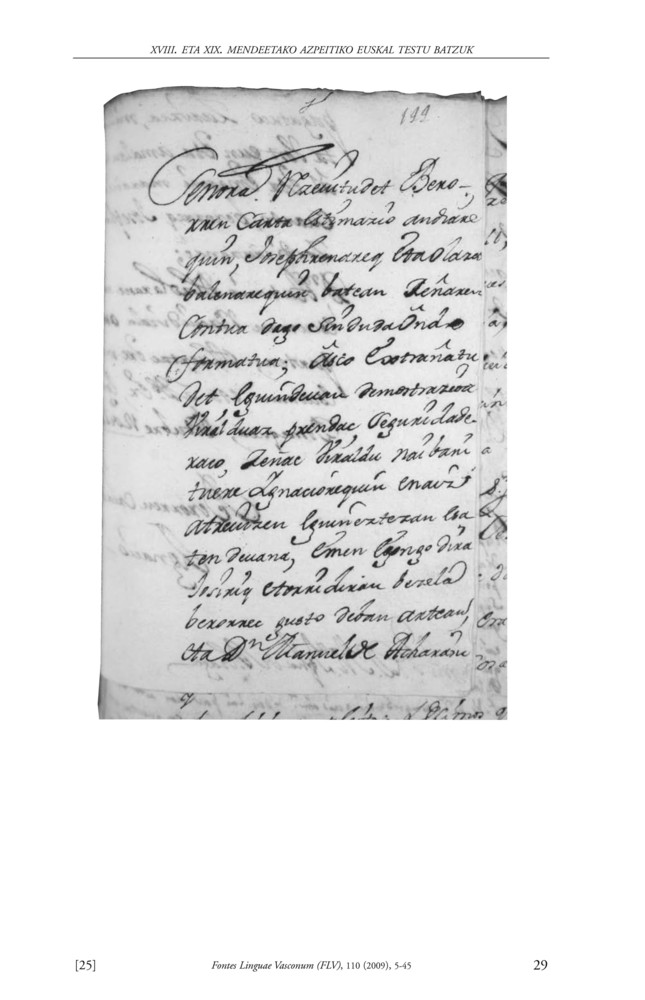 XVIII. ETA XIX. MENDEETAKO AZPEITIKO EUSKAL TESTU BATZUK
199
Señora. Raciuitudet Bero-
rren Carta estimazio andiare
quin, Josephrenareq eta Olaza
balenarequin batean Zeñaren
Contra dago Sin dudaOndo
formatua; Asco Extrañatu
det Eguindeuan demostrazioa
Viralduaz prendac Seguridade
raco, Zeñac Viraldu nai bani
tuere Ignaciorequin enaiz
atreuitzen Eguinerteran esa
ten deuana, Emen Egongo dira
Josirıq etorri diran bezela
berorrec gusto deban artean,
eta Dn Manuel de Acharan
[25]
Fontes Linguae Vasconum (FLV), 110 (2009), 5-45
29